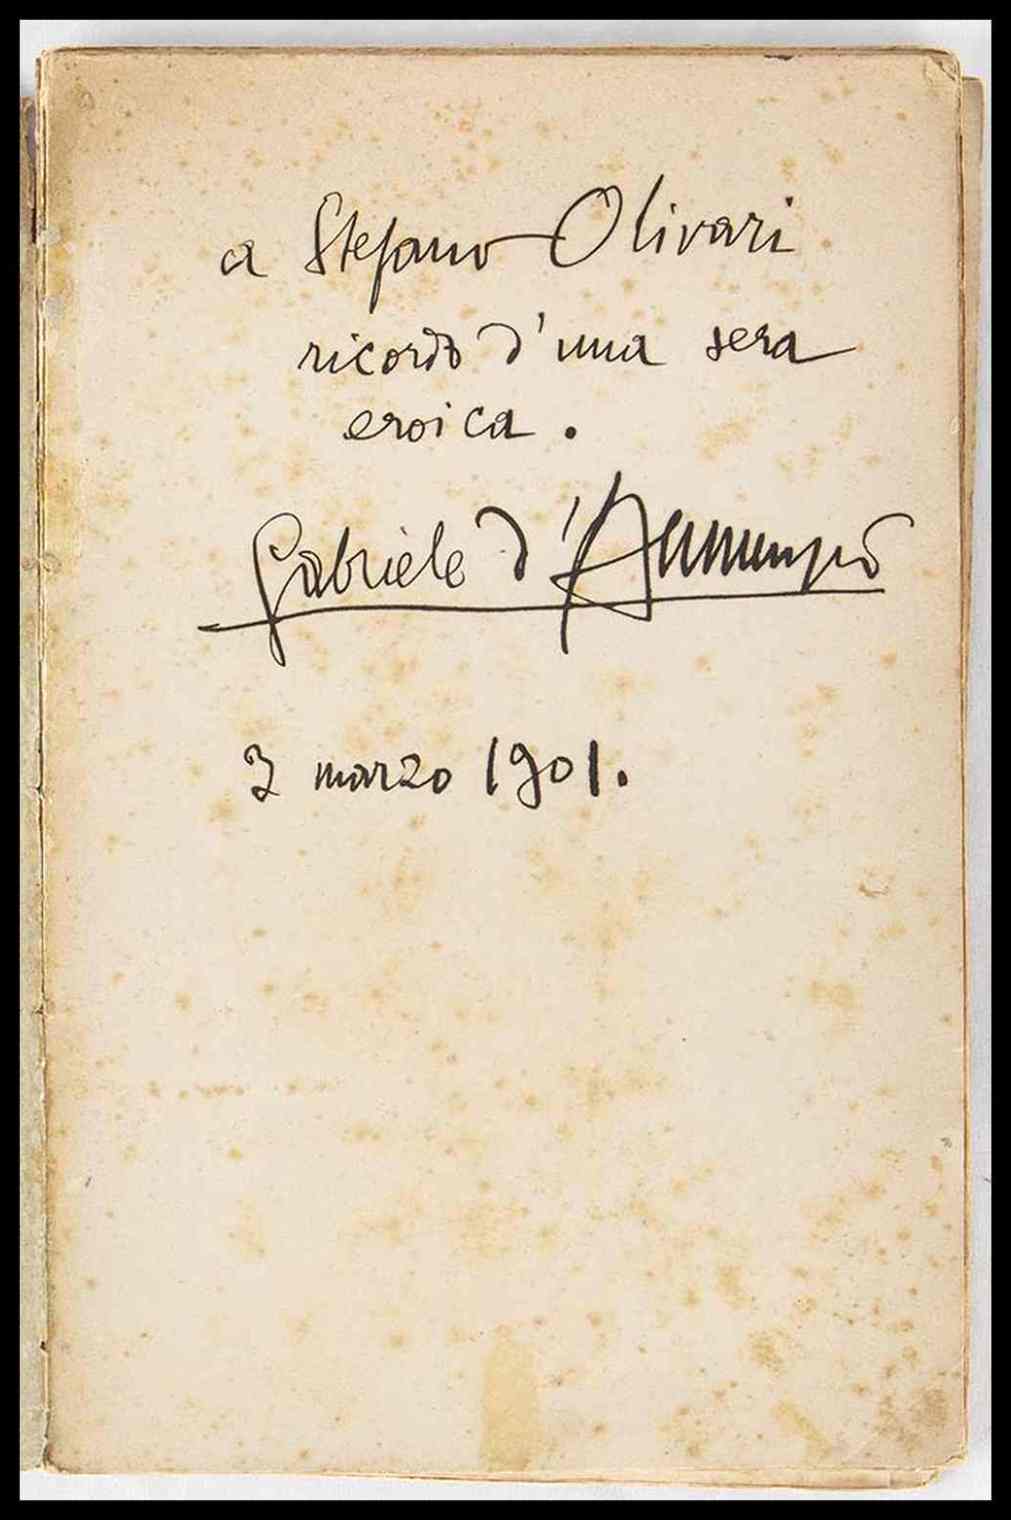 a Stefano Olivari
ricordo d'una sera
eroica.
Gabriele d'Annunzio
3 marzo 1901.